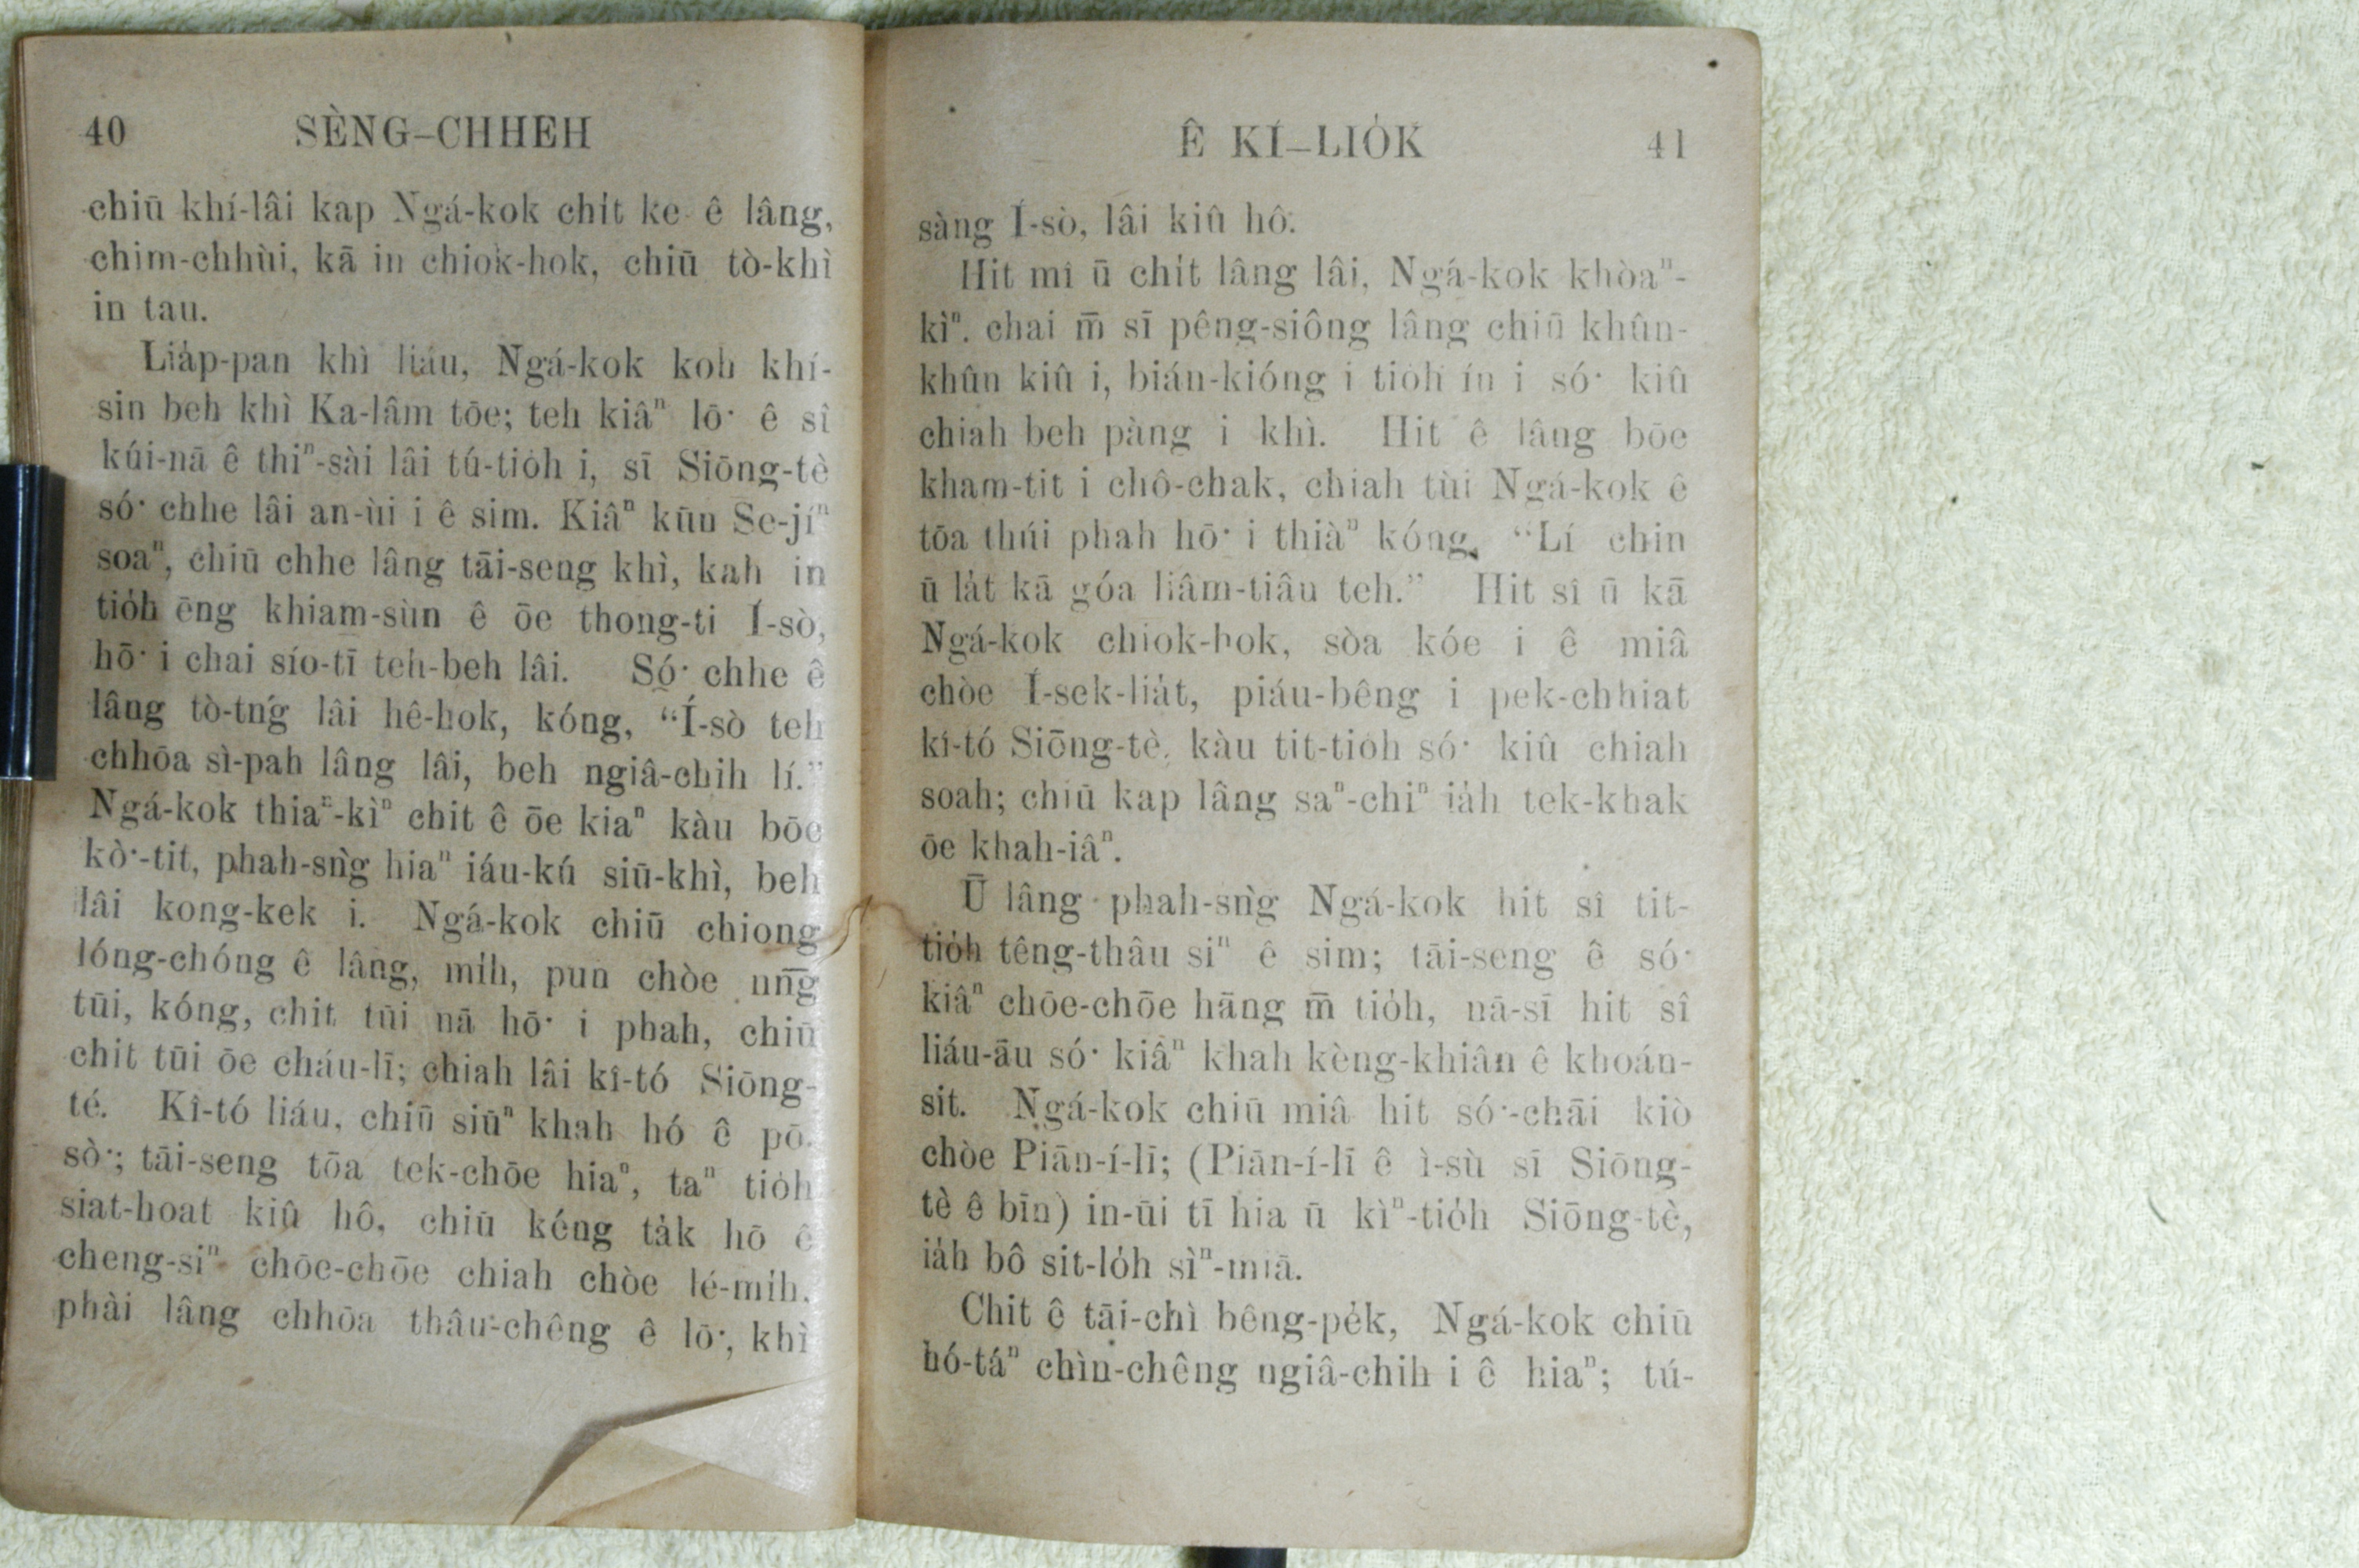 40 SÈNG–CHHEH
chiū khí-lâi kap Ngá-kok chi̍t ke ê lâng,
chim-chhùi, kā in chiok-hok, chiū tò-khì
in tau.
Lia̍p-pan khì liáu, Ngá-kok koh khí-
sin beh khì Ka-lâm tōe; teh kiâⁿ lō͘ ê sî
kúi-nā ê thiⁿ-sài lâi tú-tio̍h i, sī Siōng-tè
só͘ chhe lâi an-ùi i ê sim. Kiâⁿ kūn Se-jíⁿ
soaⁿ, chiū chhe lâng tāi-seng khì, kah in
tio̍h ēng khiam-sùn ê ōe thong-ti Í-sò,
hō͘ i chai sío-tī teh-beh lâi. Só͘ chhe ê
lâng tò-tńg lâi hê-hok, kóng, “Í-sò teh
chhōa sì-pah lâng lâi, beh ngiâ-chih lí.”
Ngá-kok thiaⁿ-kìⁿ chit ê ōe kiaⁿ kàu bōe
kò͘-tit, phah-sǹg hiaⁿ iáu-kú siū-khì, beh
lâi kong-kek i. Ngá-kok chiū chiong
lóng-chóng ê lâng, mi̍h, pun chòe nn̄g
tūi, kóng, chit tūi nā hō͘ i phah, chiū
chit tūi ōe cháu-lī; chiah lâi kî-tó Siōng-
té. Kî-tó liáu, chiū siūⁿ khah hó ê pō-
sò͘; tāi-seng tōa tek-chōe hiaⁿ, taⁿ tio̍h
siat-hoat kiû hô, chiū kéng ta̍k hō ê
cheng-siⁿ chōe-chōe chiah chòe lé-mi̍h,
phài lâng chhōa thâu-chêng ê lō͘, khì
Ê KÍ–LIO̍K 41
sàng Í-sò, lâi kiû hô.
Hit mî ū chi̍t lâng lâi, Ngá-kok khòaⁿ-
kìⁿ. chai m̄ sī pêng-siông lâng chiū khûn-
khûn kiû i, bián-kióng i tio̍h ín i só͘ kiû
chiah beh pàng i khì. Hit ê lâng bōe
kham-tit i chô-chak, chiah tùi Ngá-kok ê
tōa thúi phah hō͘ i thiàⁿ kóng, “Lí chin
ū la̍t kā góa liâm-tiâu teh.” Hit sî ū kā
Ngá-kok chiok-hok, sòa kóe i ê miâ
chòe Í-sek-lia̍t, piáu-bêng i pek-chhiat
kî-tó Siōng-tè, kàu tit-tio̍h só͘ kiû chiah
soah; chiū kap lâng saⁿ-chiⁿ ia̍h tek-khak
ōe khah-iâⁿ.
Ū lâng phah-sǹg Ngá-kok hit sî tit-
tio̍h têng-thâu siⁿ ê sim; tāi-seng ê só͘
kiâⁿ chōe-chōe hāng m̄ tio̍h, nā-sī hit sî
liáu-āu só͘ kiâⁿ khah kèng-khiân ê khoán-
sit. Ngá-kok chiū miâ hit só͘-chāi kiò
chòe Piān-í-lī; (Piān-í-lī ê ì-sù sī Siōng-
tè ê bīn) in-ūi tī hia ū kìⁿ-tio̍h Siōng-tè,
ia̍h bô sit-lo̍h sìⁿ-miā.
Chit ê tāi-chì bêng-pe̍k, Ngá-kok chiū
hó-táⁿ chìn-chêng ngiâ-chih i ê hiaⁿ; tú-